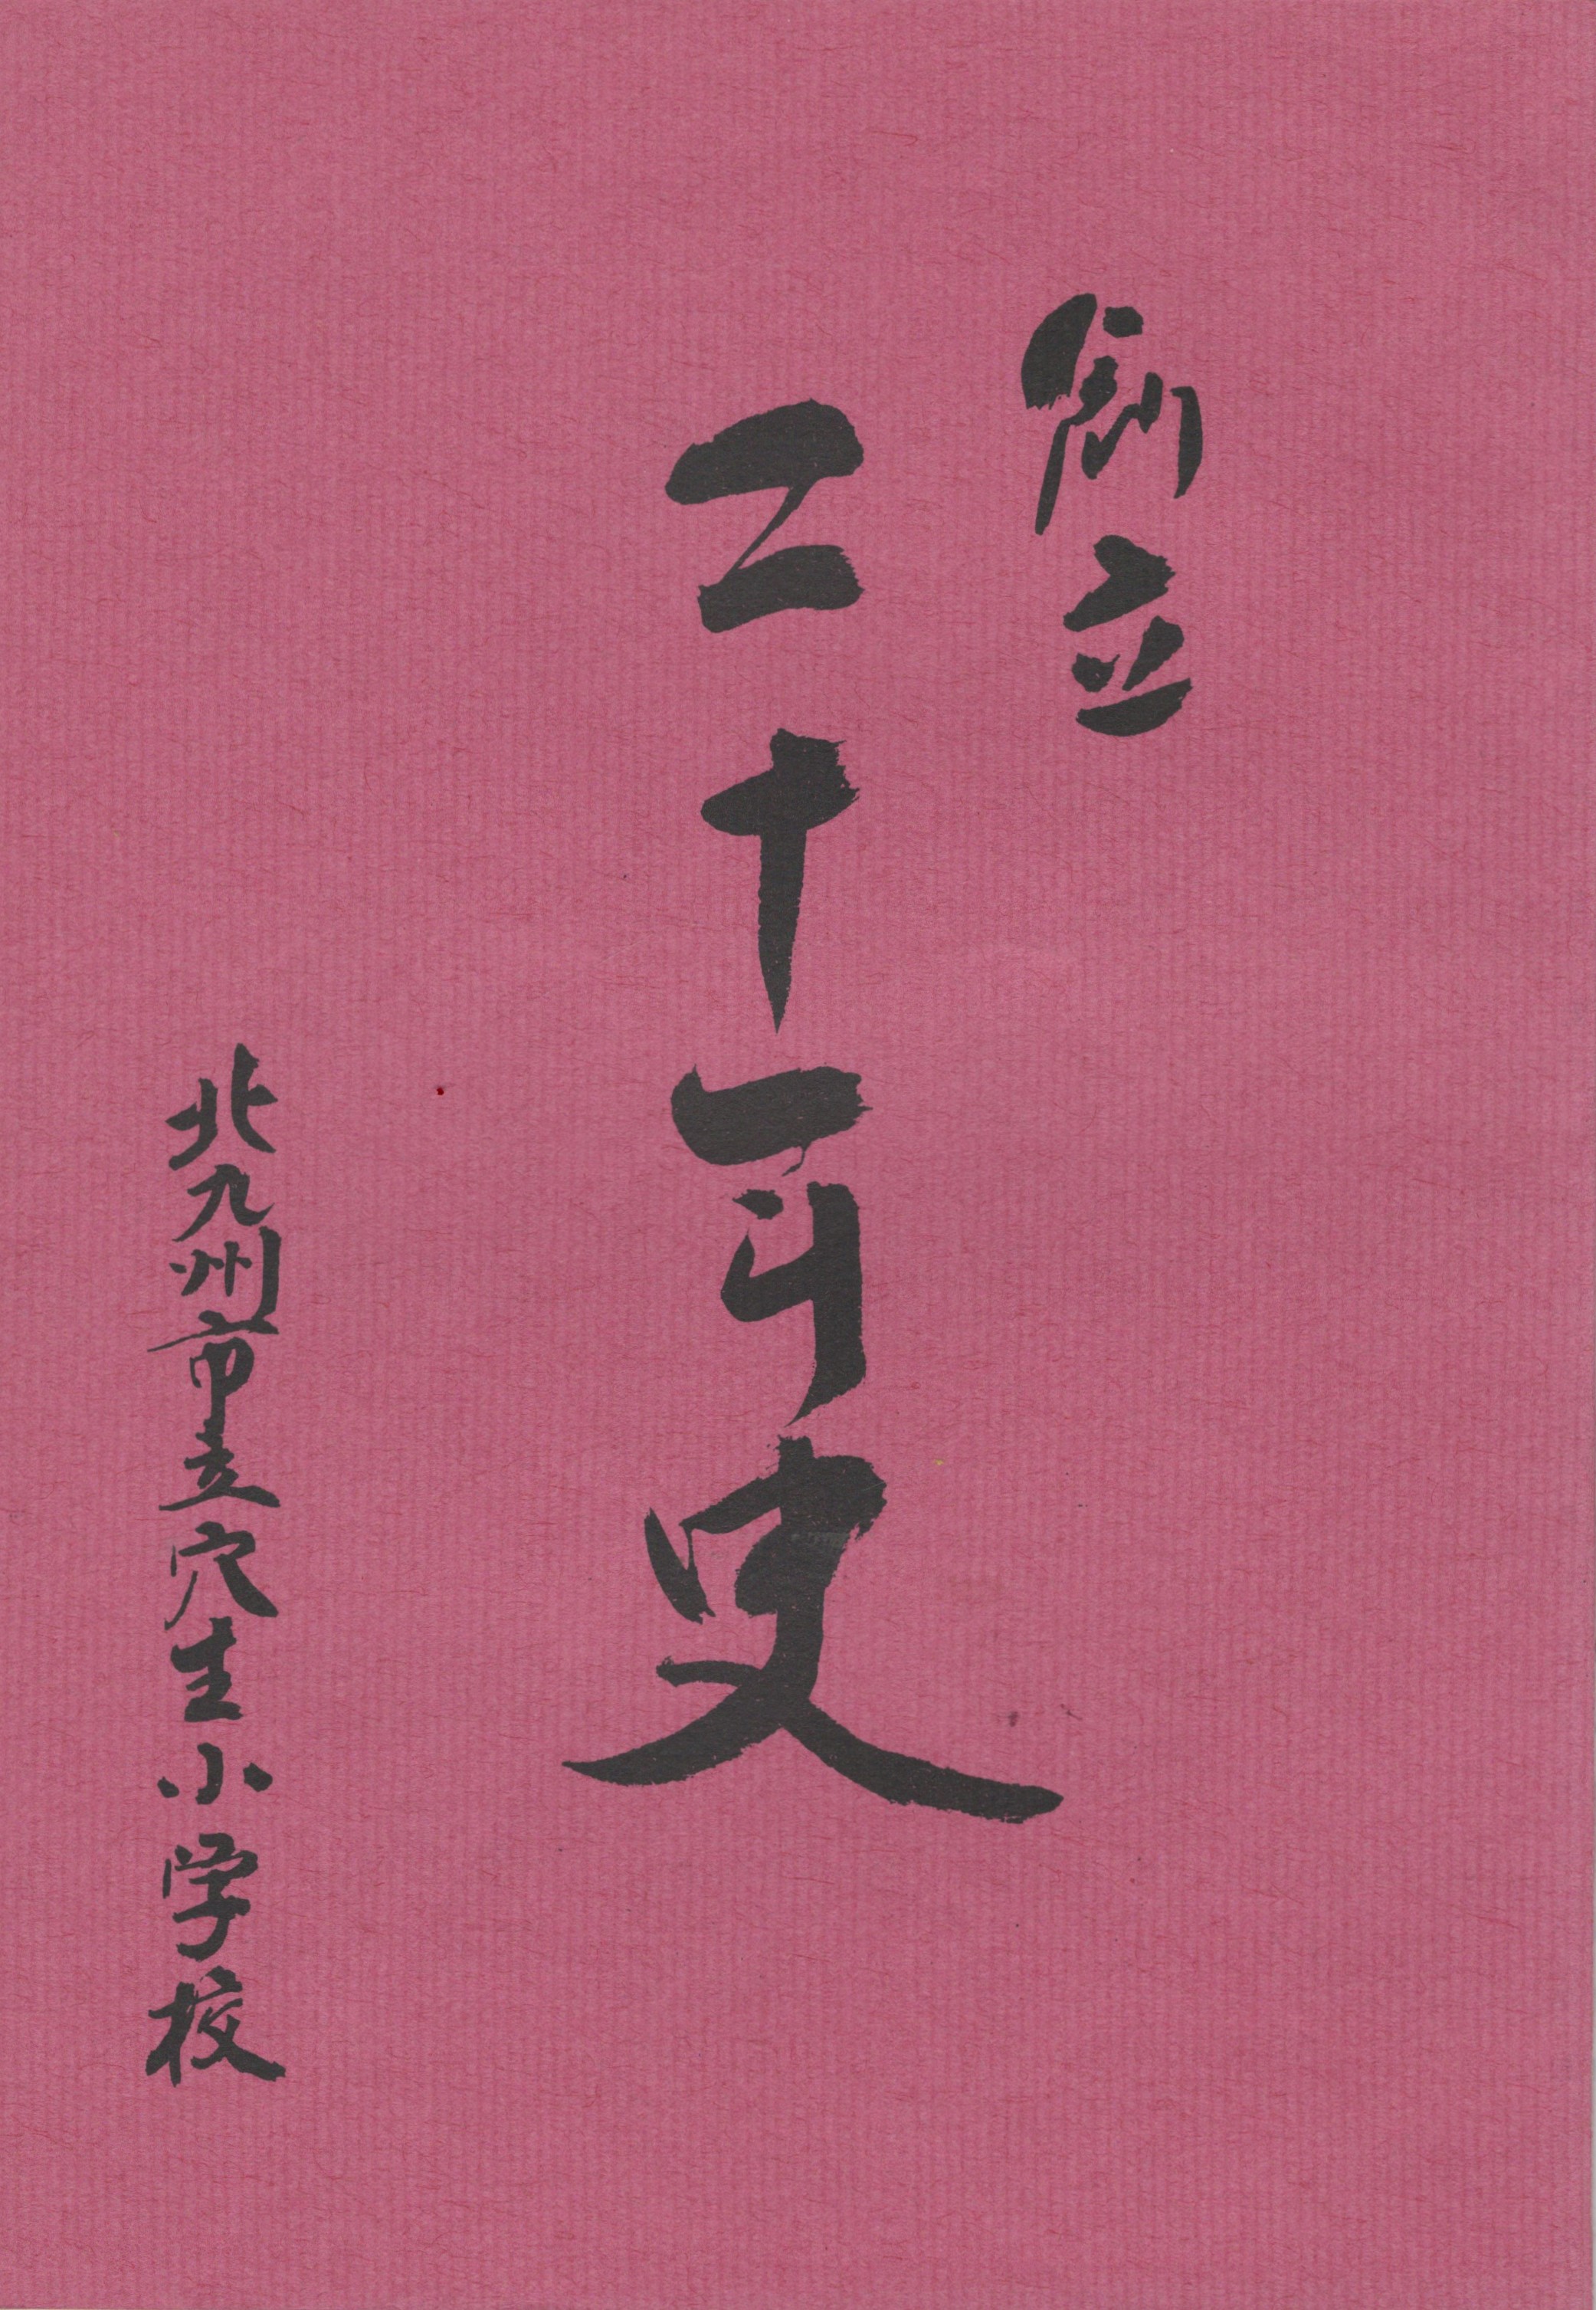 創立
二十年史
北九州市立穴生小学校